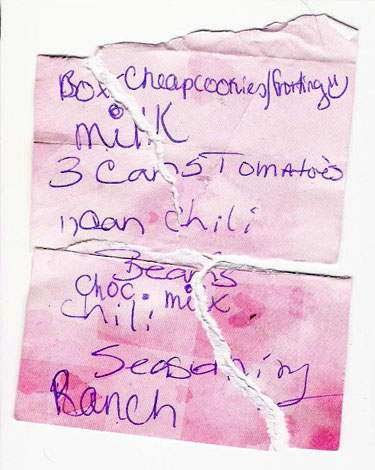 Box cheap cookies/frosting
milk
3 cans Tomatoes
1 can chili
Beans
choc. milk
chili
Seasoning
Ranch